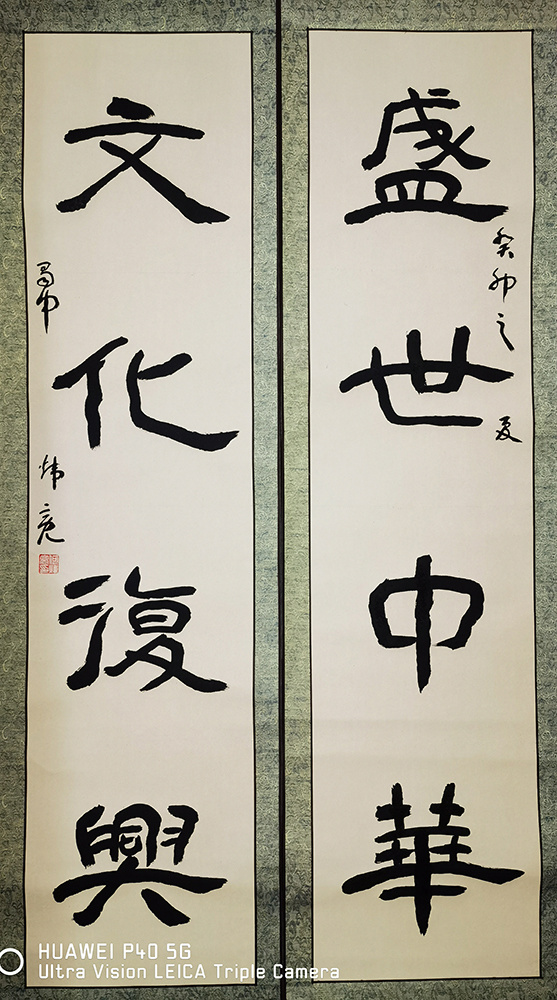 盛世中華
癸卯之夏
文化復興
蜀中
煒亮
HUAWEI P40 5G
Ultra Vision LEICA Triple Camera